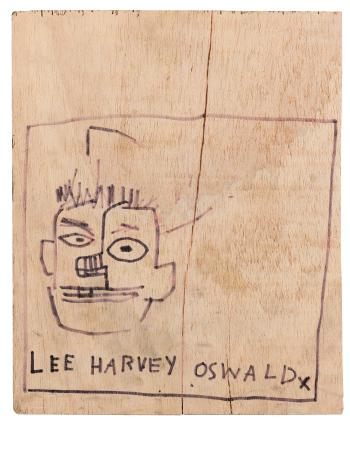 LEE HARVEY OSWALDx